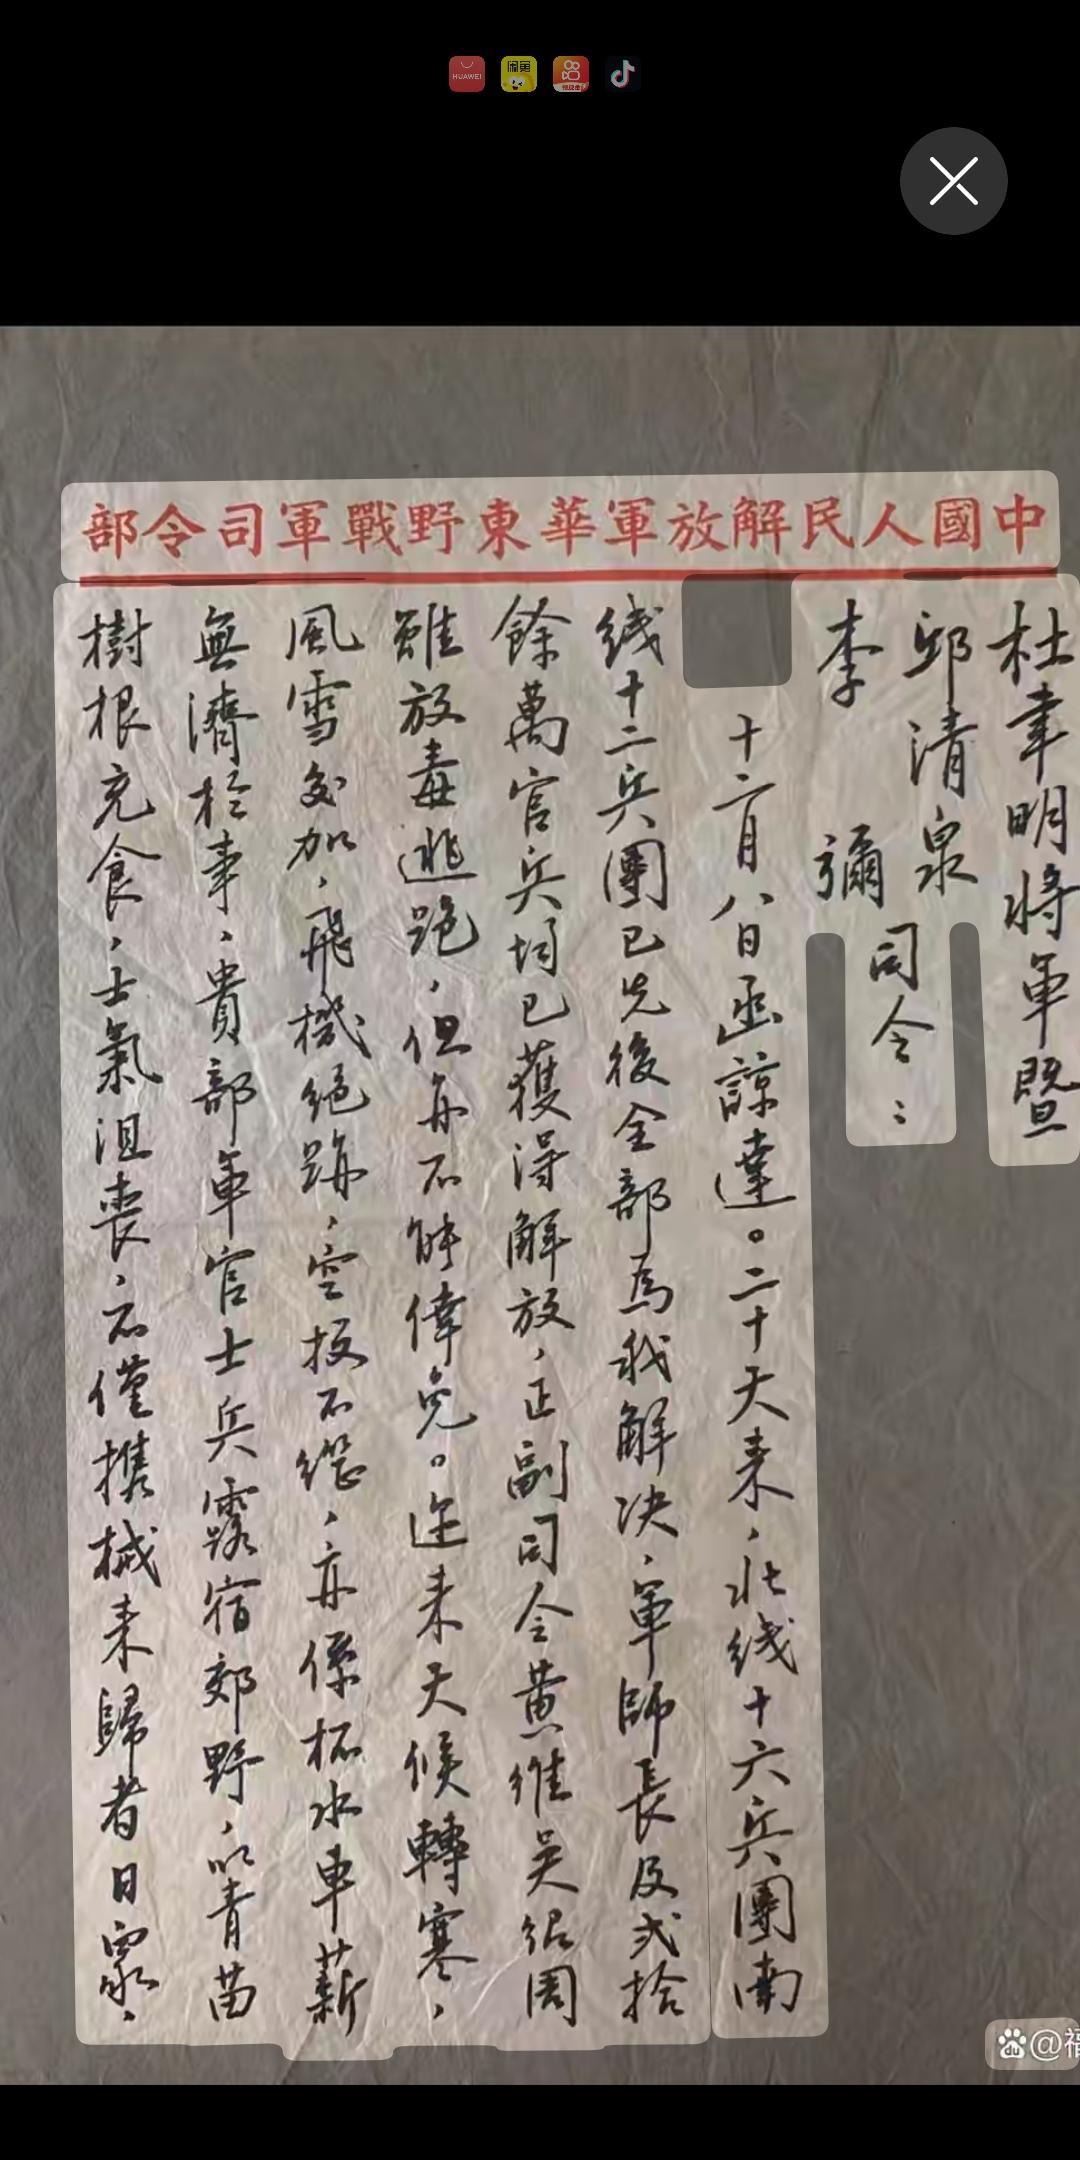 HUAWEI
闲鱼
中國人民解放軍華東野戰軍司令部
杜聿明將軍暨
邱清泉
李彌
司令：
十二月八日函諒達。二十天來，北线十六兵團南
线十二兵團已先後全部為我解决，軍師長及弍拾
餘萬官兵均已獲得解放，正副司令黄維吴绍周
雖放毒逃跑，但亦不能倖免。近来天候轉寒，
風雪交加，飛機绝跡，空投不继，亦係杯水車薪
無濟於事，貴部軍官士兵露宿郊野，以青苗
樹根充食，士氣沮喪，不僅携械来歸者日眾，
du @福